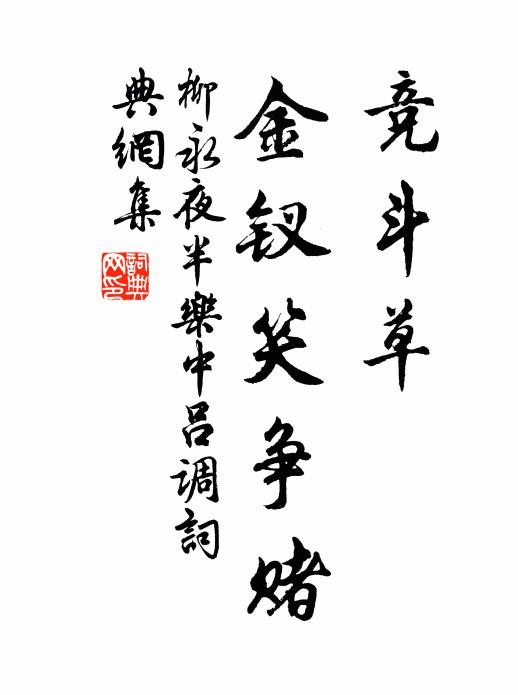 竞斗草
金钗笑争赌
柳永夜半樂中呂调詞
典網集
詞典
网印